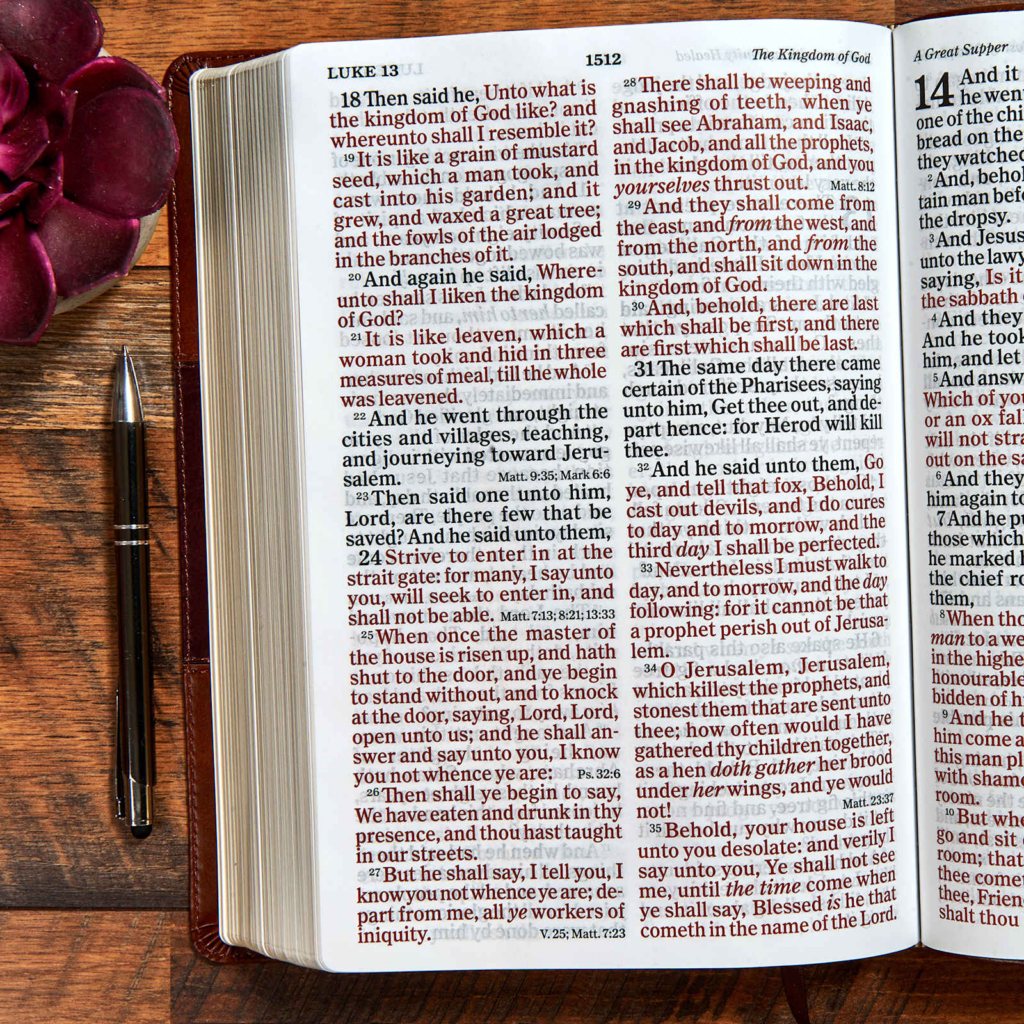 LUKE 13
1512
The Kingdom of God
18 Then said he, Unto what is
the kingdom of God like? and
whereunto shall I resemble it?
19 It is like a grain of mustard
seed, which a man took, and
cast into his garden; and it
grew, and waxed a great tree;
and the fowls of the air lodged
in the branches of it.
20 And again he said, Where-
unto shall I liken the kingdom
of God?
21 It is like leaven, which a
woman took and hid in three
measures of meal, till the whole
was leavened.
22 And he went through the
cities and villages, teaching,
and journeying toward Jeru-
salem. Matt. 9:35; Mark 6:6
23 Then said one unto him,
Lord, are there few that be
saved? And he said unto them,
24 Strive to enter in at the
strait gate: for many, I say unto
you, will seek to enter in, and
shall not be able. Matt. 7:13; 8:21; 13:33
25 When once the master of
the house is risen up, and hath
shut to the door, and ye begin
to stand without, and to knock
at the door, saying, Lord, Lord,
open unto us; and he shall an-
swer and say unto you, I know
you not whence ye are: Ps. 32:6
26 Then shall ye begin to say,
We have eaten and drunk in thy
presence, and thou hast taught
in our streets.
27 But he shall say, I tell you, I
know you not whence ye are; de-
part from me, all ye workers of
iniquity. V. 25; Matt. 7:23
28 There shall be weeping and
gnashing of teeth, when ye
shall see Abraham, and Isaac,
and Jacob, and all the prophets,
in the kingdom of God, and you
yourselves thrust out. Matt. 8:12
29 And they shall come from
the east, and from the west, and
from the north, and from the
south, and shall sit down in the
kingdom of God.
30 And, behold, there are last
which shall be first, and there
are first which shall be last.
31 The same day there came
certain of the Pharisees, saying
unto him, Get thee out, and de-
part hence: for Herod will kill
thee.
32 And he said unto them, Go
ye, and tell that fox, Behold, I
cast out devils, and I do cures
to day and to morrow, and the
third day I shall be perfected.
33 Nevertheless I must walk to
day, and to morrow, and the day
following: for it cannot be that
a prophet perish out of Jerusa-
lem.
34 O Jerusalem, Jerusalem,
which killest the prophets, and
stonest them that are sent unto
thee; how often would I have
gathered thy children together,
as a hen doth gather her brood
under her wings, and ye would
not! Matt. 23:37
35 Behold, your house is left
unto you desolate: and verily I
say unto you, Ye shall not see
me, until the time come when
ye shall say, Blessed is he that
cometh in the name of the Lord.
A Great Supper
14 And it
he went
one of the chi
bread on the
they watched
2 And, behol
tain man befo
the dropsy.
3 And Jesus
unto the lawy
saying, Is it
the sabbath
4 And they
And he took
him, and let
5 And answ
Which of you
or an ox fal
will not stra
out on the sa
6 And they
him again to
7 And he pu
those which
he marked h
the chief ro
them,
8 When tho
man to a we
in the highe
honourable
bidden of h
9 And he t
him come a
this man pl
with shame
room.
10 But whe
go and sit
room; that
thee comet
thee, Frien
shalt thou